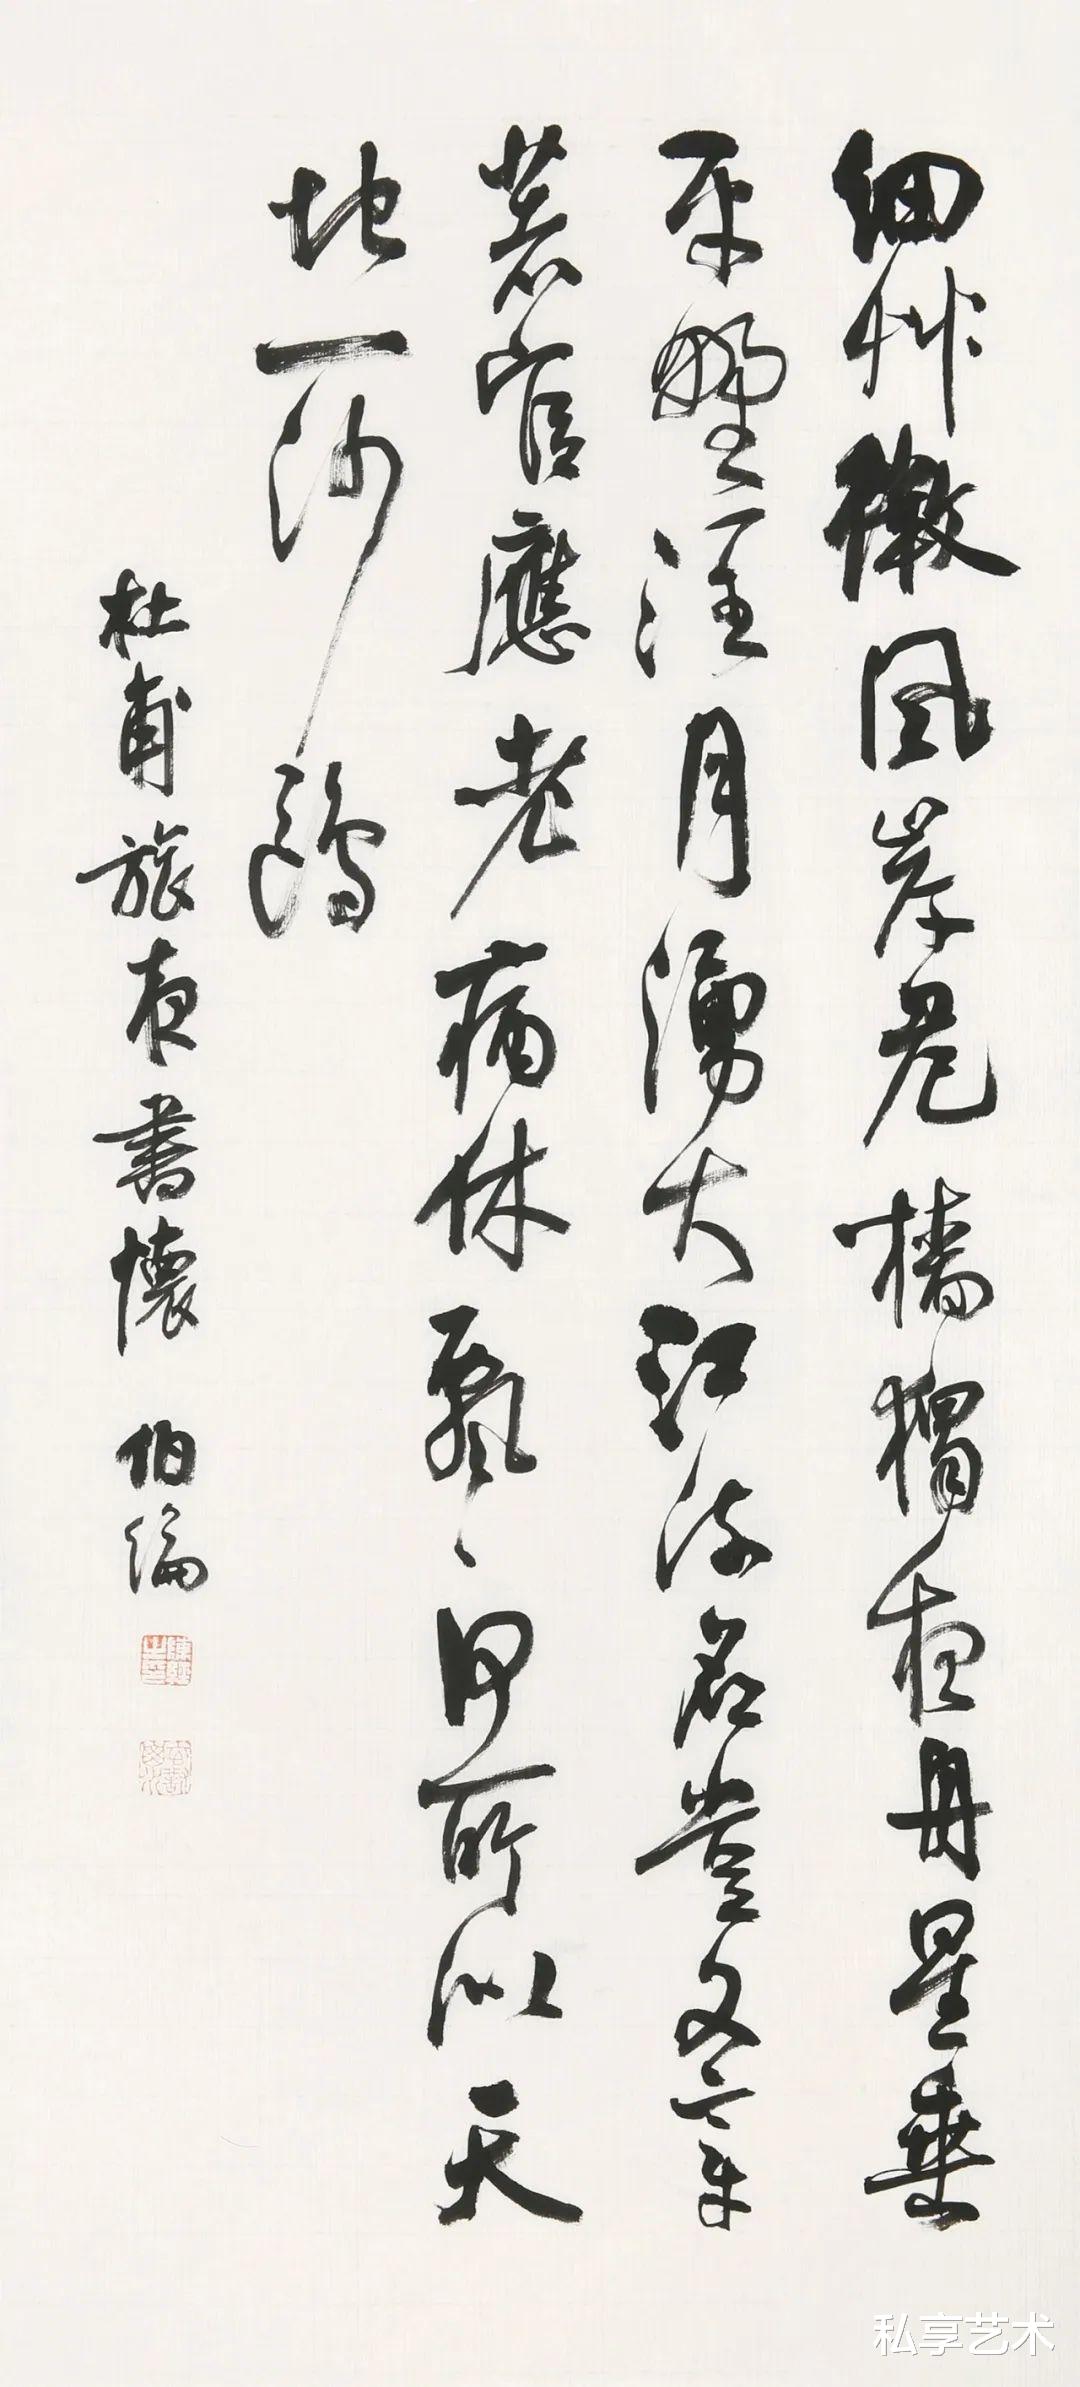 細艸微風岸危檣獨夜舟星垂
平野濶月湧大江流名豈文章
著官應老病休飄〻何所似天
地一沙鷗
杜甫旅夜書懷 伯綸
私享艺术